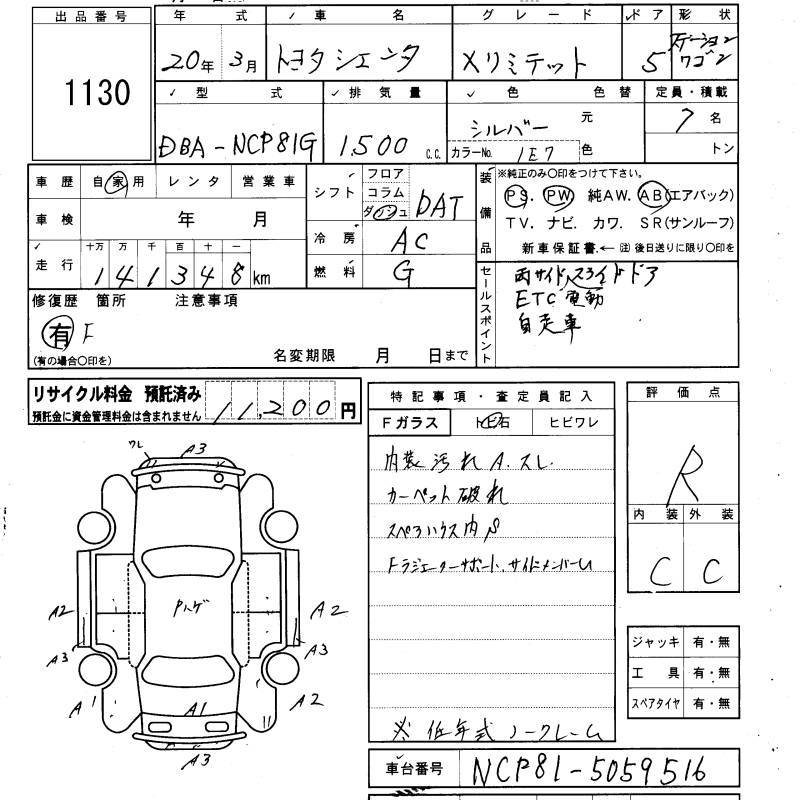 出品番号
1130
年 式 車 名 グレード ドア 形状
20年 3月 トヨタ シエンタ Xリミテット 5 ステーションワゴン
型 式 排気量 色 色替 定員・積載
DBA-NCP81G 1,500 c.c. シルバー 元 7名
カラーNo. 1E7 色 トン
車歴 自家用 レンタ 営業車
車検 年 月
走行 十万 万 千 百 十 一
141348 km
シフト フロア コラム ダッシュ DAT
冷房 AC
燃料 G
装備品 ※純正のみ○印をつけて下さい。
PS. PW 純AW. AB(エアバック)
TV. ナビ. カワ. SR(サンルーフ)
新車保証書.← 注 後日送りに限り○印を
セールスポイント
両サイドスライドドア
ETC 電動
自走車
修復歴 箇所 注意事項
有 F
(有の場合○印を) 名変期限 月 日まで
リサイクル料金 預託済み
預託金に資金管理料金は含まれません
11,200円
特記事項・査定員記入
Fガラス トビ石 ヒビワレ
内装汚れ A.スレ
カーペット破れ
Fラジエターサポート、サイドメンバーU
※低年式ノークレーム
評価点
R
内装 外装
C C
ジャッキ 有・無
工具 有・無
スペアタイヤ 有・無
車台番号 NCP81-5059516
ワレ A3
A2 A2
Pハゲ
A3 A3
A1 A1 A2
A3